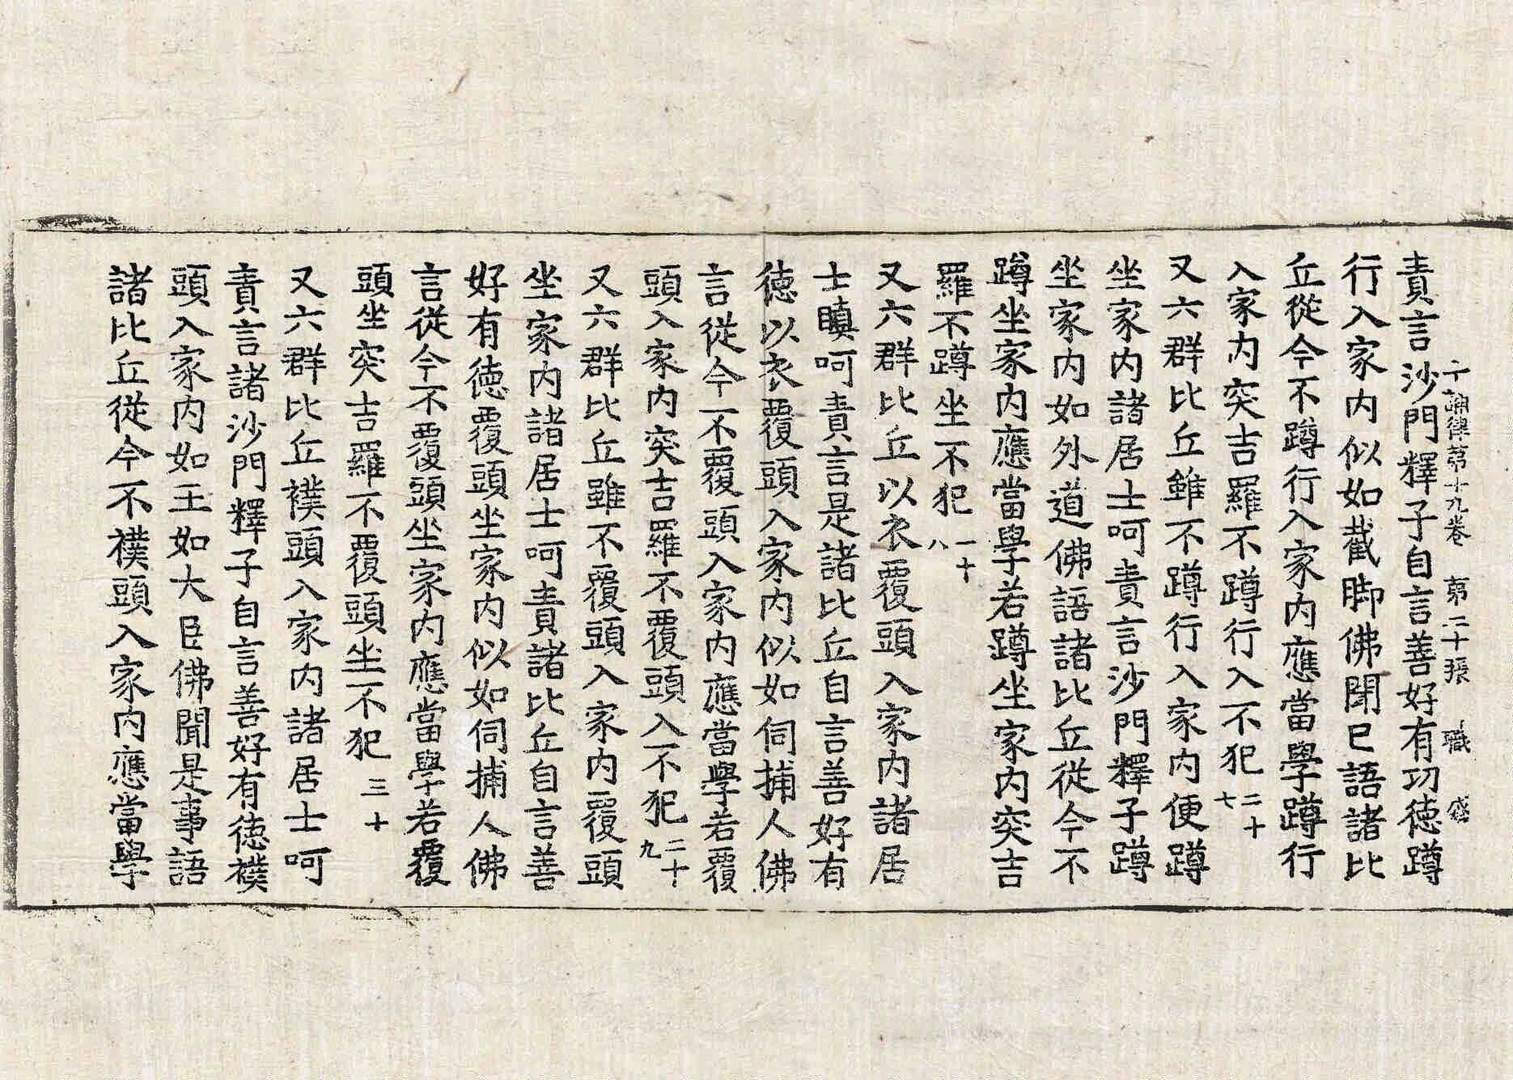 十誦律第十九卷 第二十張 職 盛
責言沙門釋子自言善好有功徳蹲
行入家内似如截脚佛聞已語諸比
丘從今不蹲行入家内應當學蹲行
入家内突吉羅不蹲行入不犯 二十七
又六群比丘雖不蹲行入家内便蹲
坐家内諸居士呵責言沙門釋子蹲
坐家内如外道佛語諸比丘從今不
蹲坐家内應當學若蹲坐家内突吉
羅不蹲坐不犯 一十八
又六群比丘以衣覆頭入家内諸居
士瞋呵責言是諸比丘自言善好有
徳以衣覆頭入家内似如伺捕人佛
言從今不覆頭入家内應當學若覆
頭入家内突吉羅不覆頭入不犯 二十九
又六群比丘雖不覆頭入家内覆頭
坐家内諸居士呵責諸比丘自言善
好有徳覆頭坐家内似如伺捕人佛
言從今不覆頭坐家内應當學若覆
頭坐突吉羅不覆頭坐不犯 三十
又六群比丘襆頭入家内諸居士呵
責言諸沙門釋子自言善好有徳襆
頭入家内如王如大臣佛聞是事語
諸比丘從今不襆頭入家内應當學